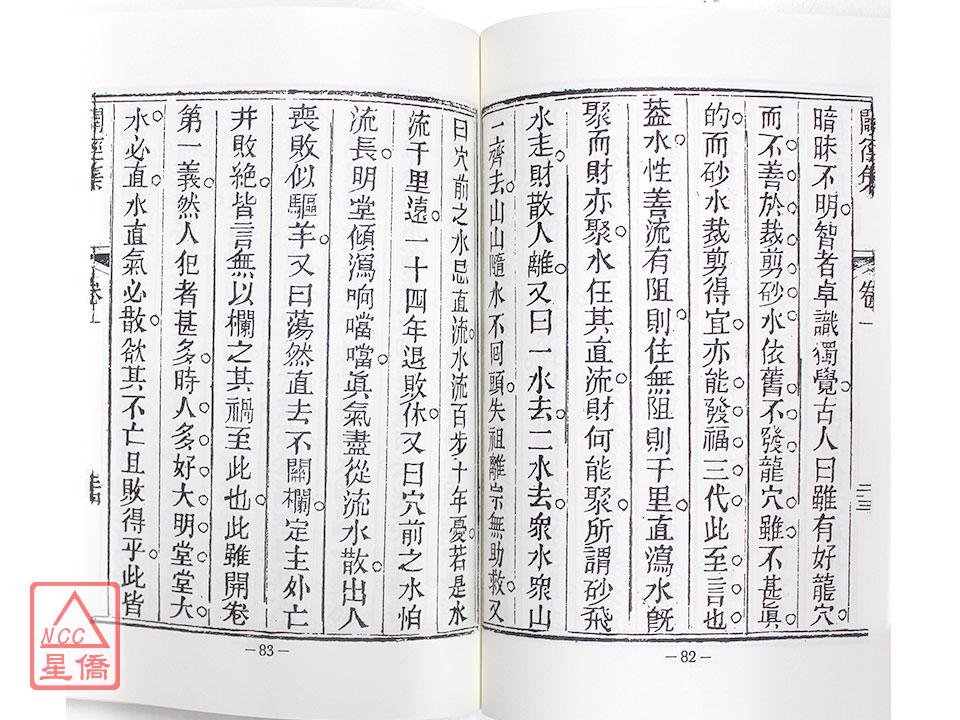 卷一
二三
暗昧不明智者卓識獨覺古人曰雖有好龍穴
而不善於裁剪砂水依舊不發龍穴雖不甚眞
的而砂水裁剪得宜亦能發福三代此至言也
葢水性善流有阻則住無阻則千里直瀉水旣
聚而財亦聚水任其直流財何能聚所謂砂飛
水走財散人離又曰一水去二水去衆水衆山
一齊去山山隨水不囘頭失祖離宗無助救又
—82—
曰穴前之水忌直流水流百步十年憂若是水
流千里遠一十四年退敗休又曰穴前之水怕
流長明堂傾瀉响噹噹眞氣盡從流水散出人
喪敗似驅羊又曰蕩然直去不關欄定主外亡
并敗絕皆言無以欄之其禍至此也此雖開卷
第一義然人犯者甚多時人多好大明堂堂大
水必直水直氣必散欲其不亡且敗得乎此皆
—83—
NCC
星僑